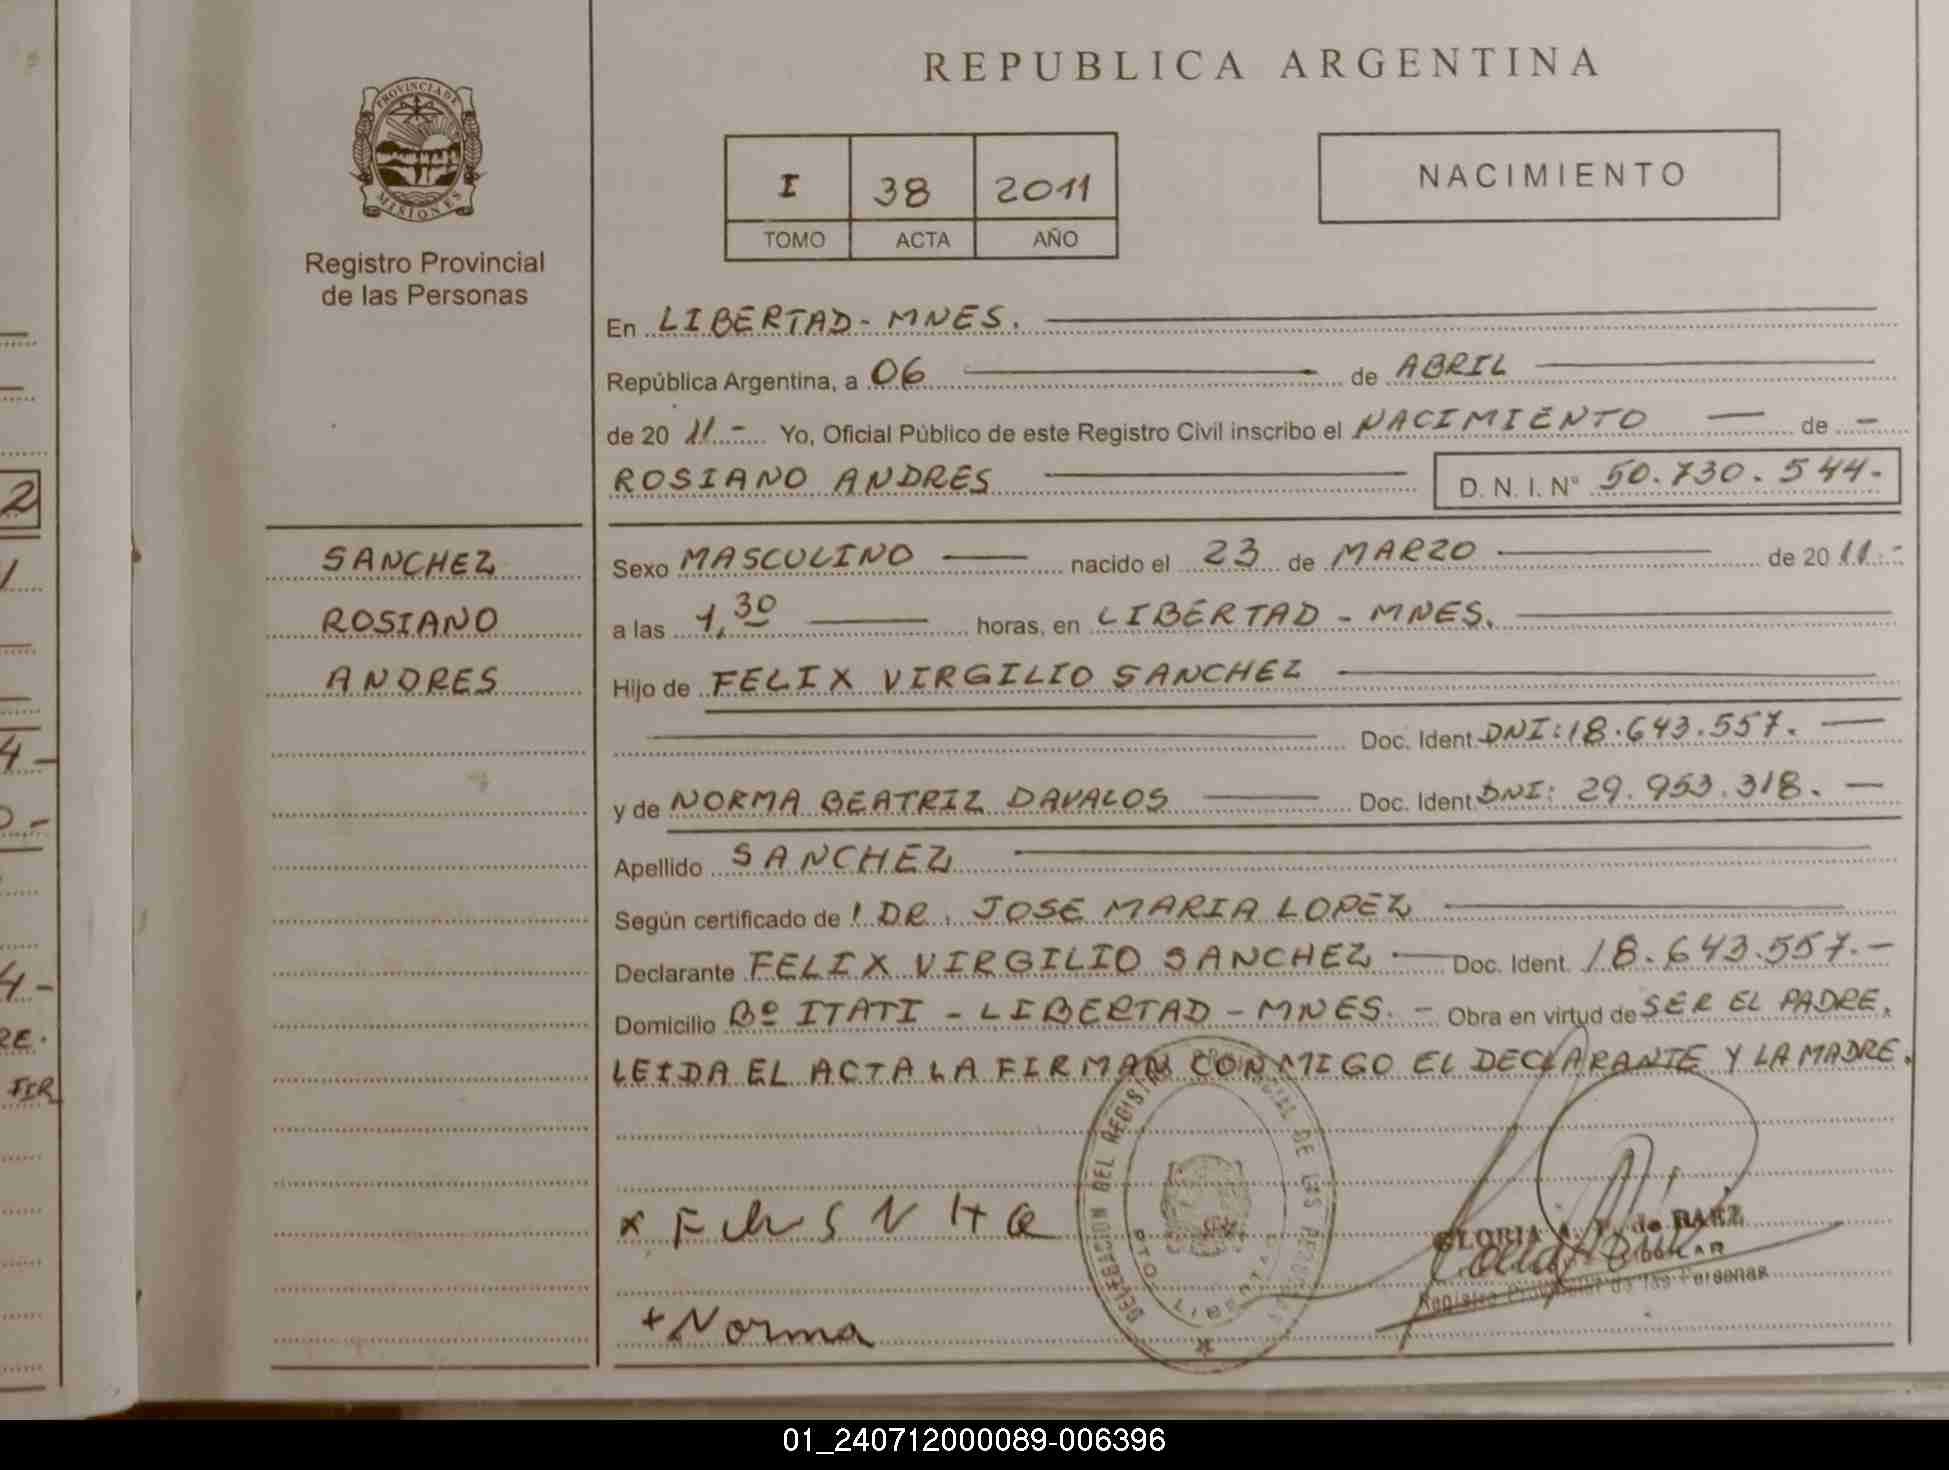 REPUBLICA ARGENTINA
PROVINCIA DE
MISIONES
Registro Provincial
de las Personas
I 38 2011
TOMO ACTA AÑO
NACIMIENTO
En LIBERTAD - MNES.
República Argentina, a 06 de ABRIL
de 20 11.- Yo, Oficial Público de este Registro Civil inscribo el NACIMIENTO — de -
ROSIANO ANDRES D. N. I. N° 50.730.544.-
SANCHEZ
ROSIANO
ANDRES
Sexo MASCULINO — nacido el 23 de MARZO — de 20 11.-
a las 1,30 — horas, en LIBERTAD - MNES.
Hijo de FELIX VIRGILIO SANCHEZ
Doc. Ident. DNI: 18.643.557. —
y de NORMA BEATRIZ DAVALOS — Doc. Ident. DNI: 29.953.318. —
Apellido SANCHEZ
Según certificado de ! DR. JOSE MARIA LOPEZ
Declarante FELIX VIRGILIO SANCHEZ — Doc. Ident. 18.643.557.-
Domicilio Bº ITATI - LIBERTAD - MNES. - Obra en virtud de SER EL PADRE.
LEIDA EL ACTA LA FIRMAN CONMIGO EL DECLARANTE Y LA MADRE.
DELEGACION DEL REGISTRO PROVINCIAL DE LAS PERSONAS
PTO. LIBERTAD
+ Norma
GLORIA A. de BAEZ
Registro Provincial de las Personas
2
4 -
4 -
RE.
FIR
01_240712000089-006396